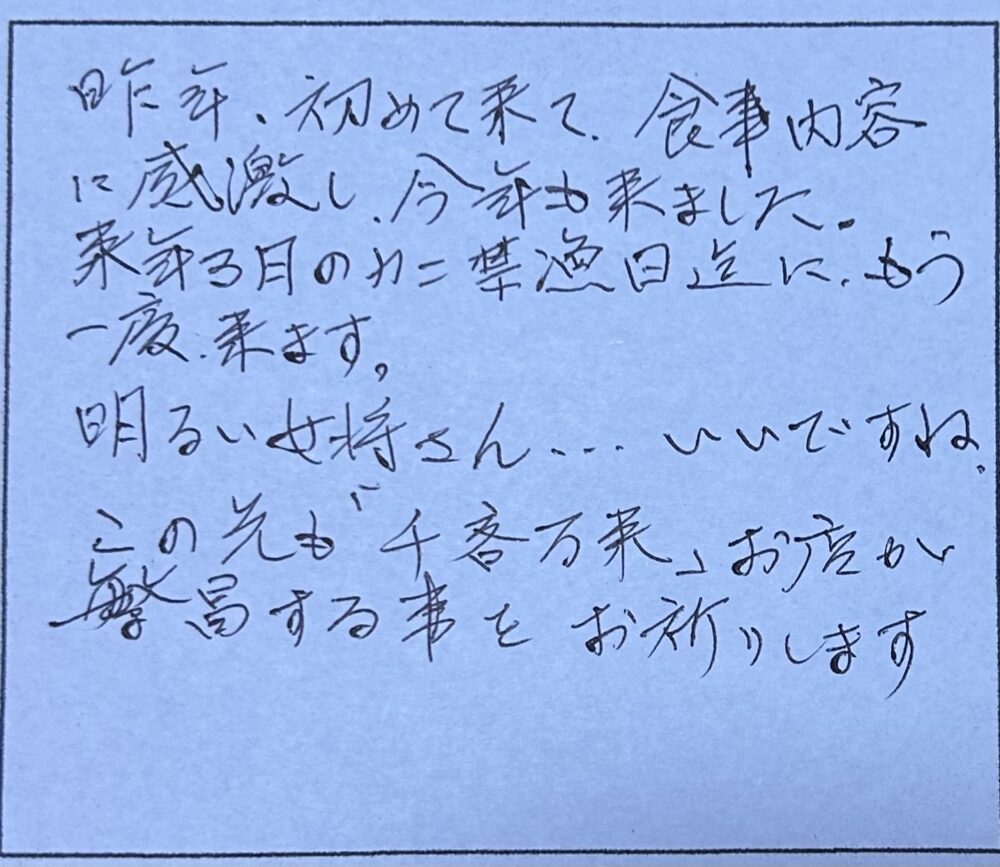 昨年、初めて来て、食事内容
に感激し、今年も来ました。
来年3月のカニ禁漁日迄に、もう
一度、来ます。
明るい女将さん... いいですね、
この先も"千客万来」お店が
繁昌する事を お祈りします